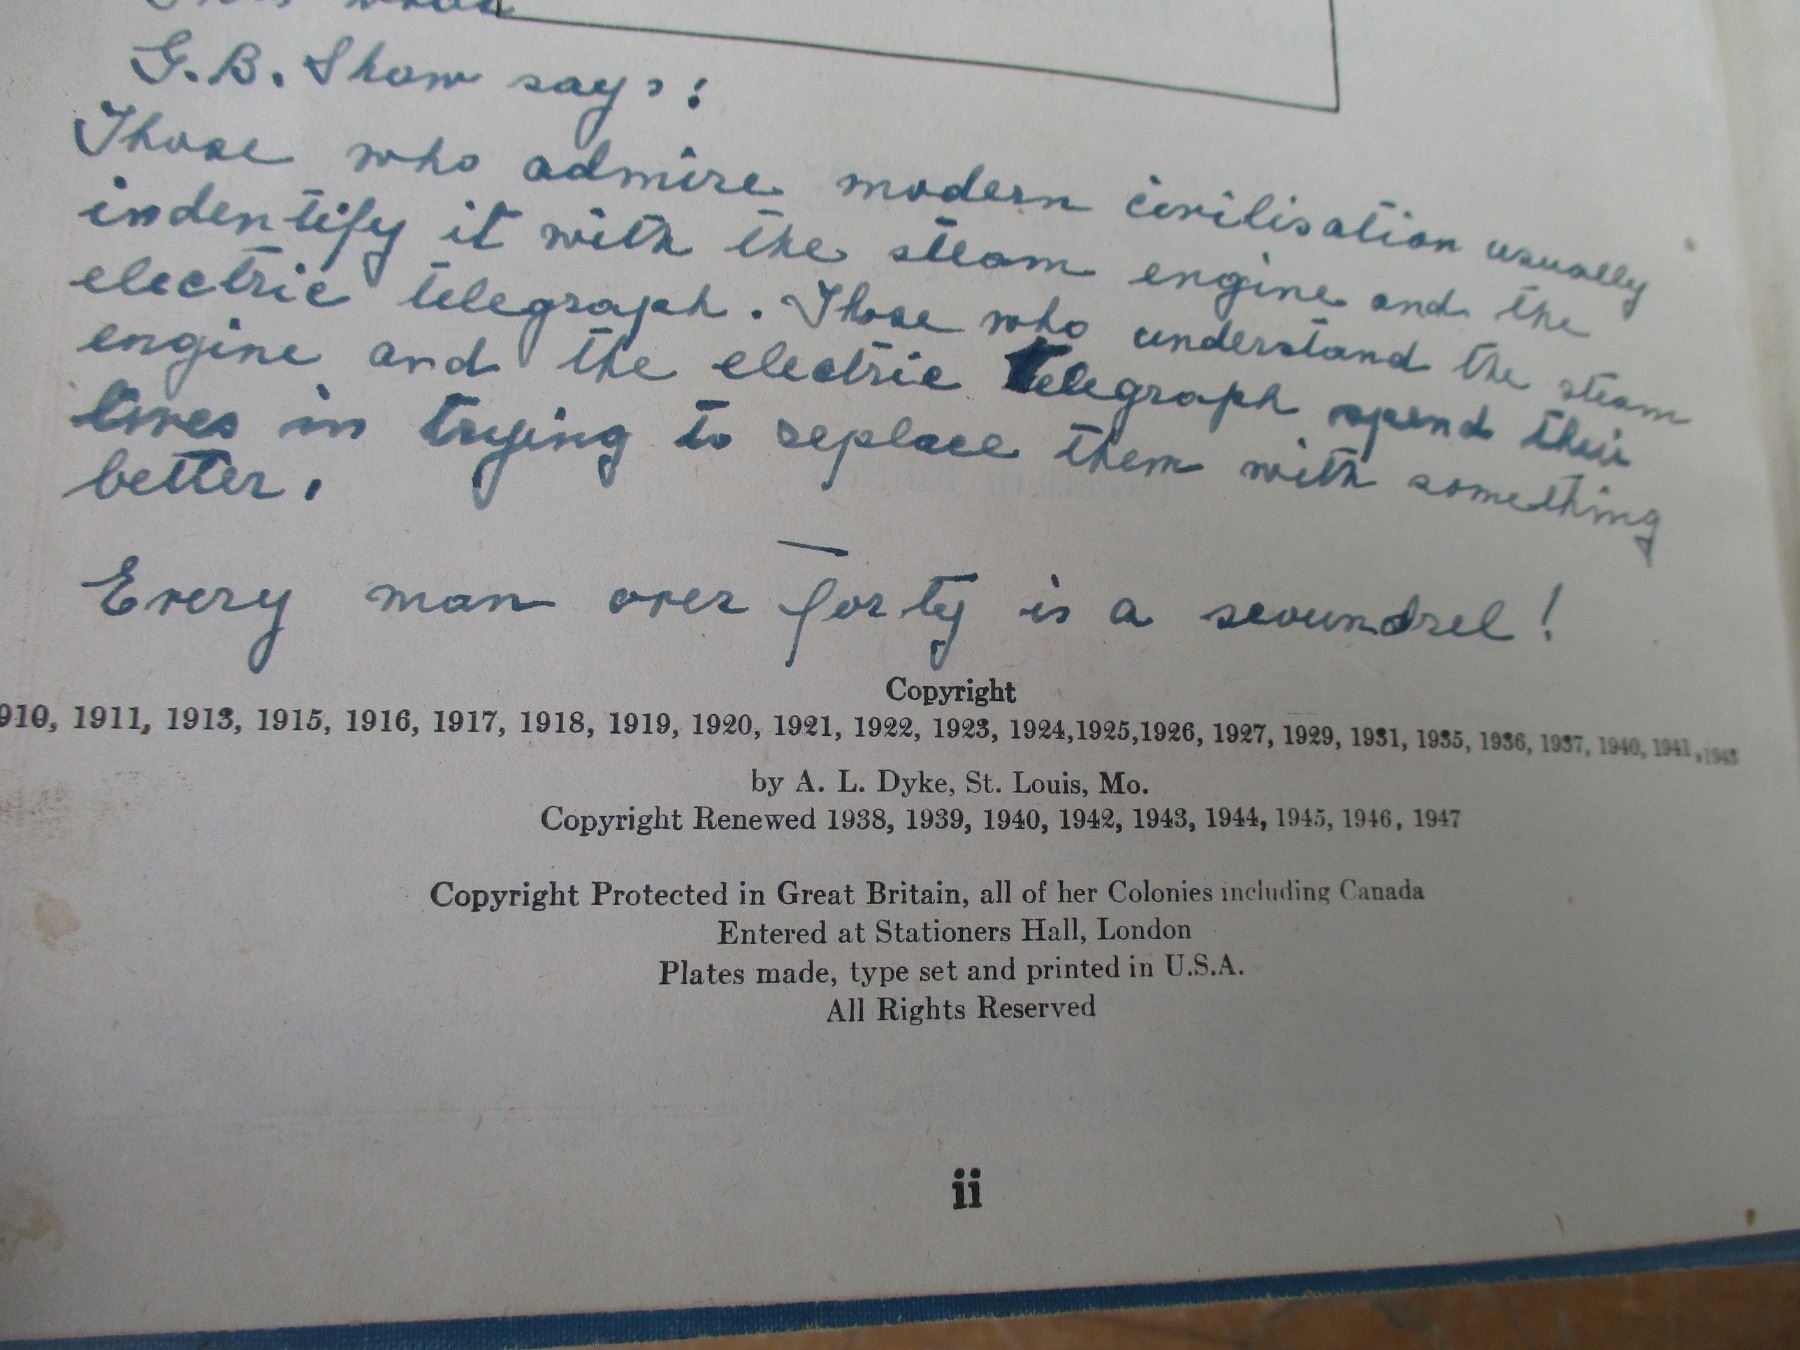 G.B. Shaw says:
Those who admire modern civilisation usually
indentify it with the steam engine and the
electric telegraph. Those who understand the steam
engine and the electric telegraph spend their
lives in trying to replace them with something
better.
Every man over forty is a scoundrel!
Copyright
910, 1911, 1913, 1915, 1916, 1917, 1918, 1919, 1920, 1921, 1922, 1923, 1924,1925,1926, 1927, 1929, 1931, 1935, 1936, 1937, 1940, 1941, 1943
by A. L. Dyke, St. Louis, Mo.
Copyright Renewed 1938, 1939, 1940, 1942, 1943, 1944, 1945, 1946, 1947
Copyright Protected in Great Britain, all of her Colonies including Canada
Entered at Stationers Hall, London
Plates made, type set and printed in U.S.A.
All Rights Reserved
ii